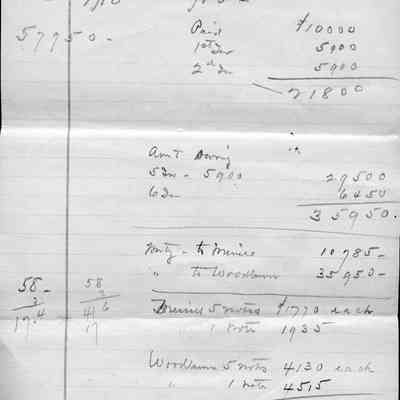 57950-
Paid $10000
1st Do 5900
2d Do 5900
21800
Am't Owing
5 Do - 5900 29500
6 Do 6450
35950.
Mtg - to 10785-
" to Woodburn 35950-
58- 58
3 3
17.4 17
5 notes $1770 each
1 note 1935
Woodburn 5 notes 4130 each
" 1 note 4515